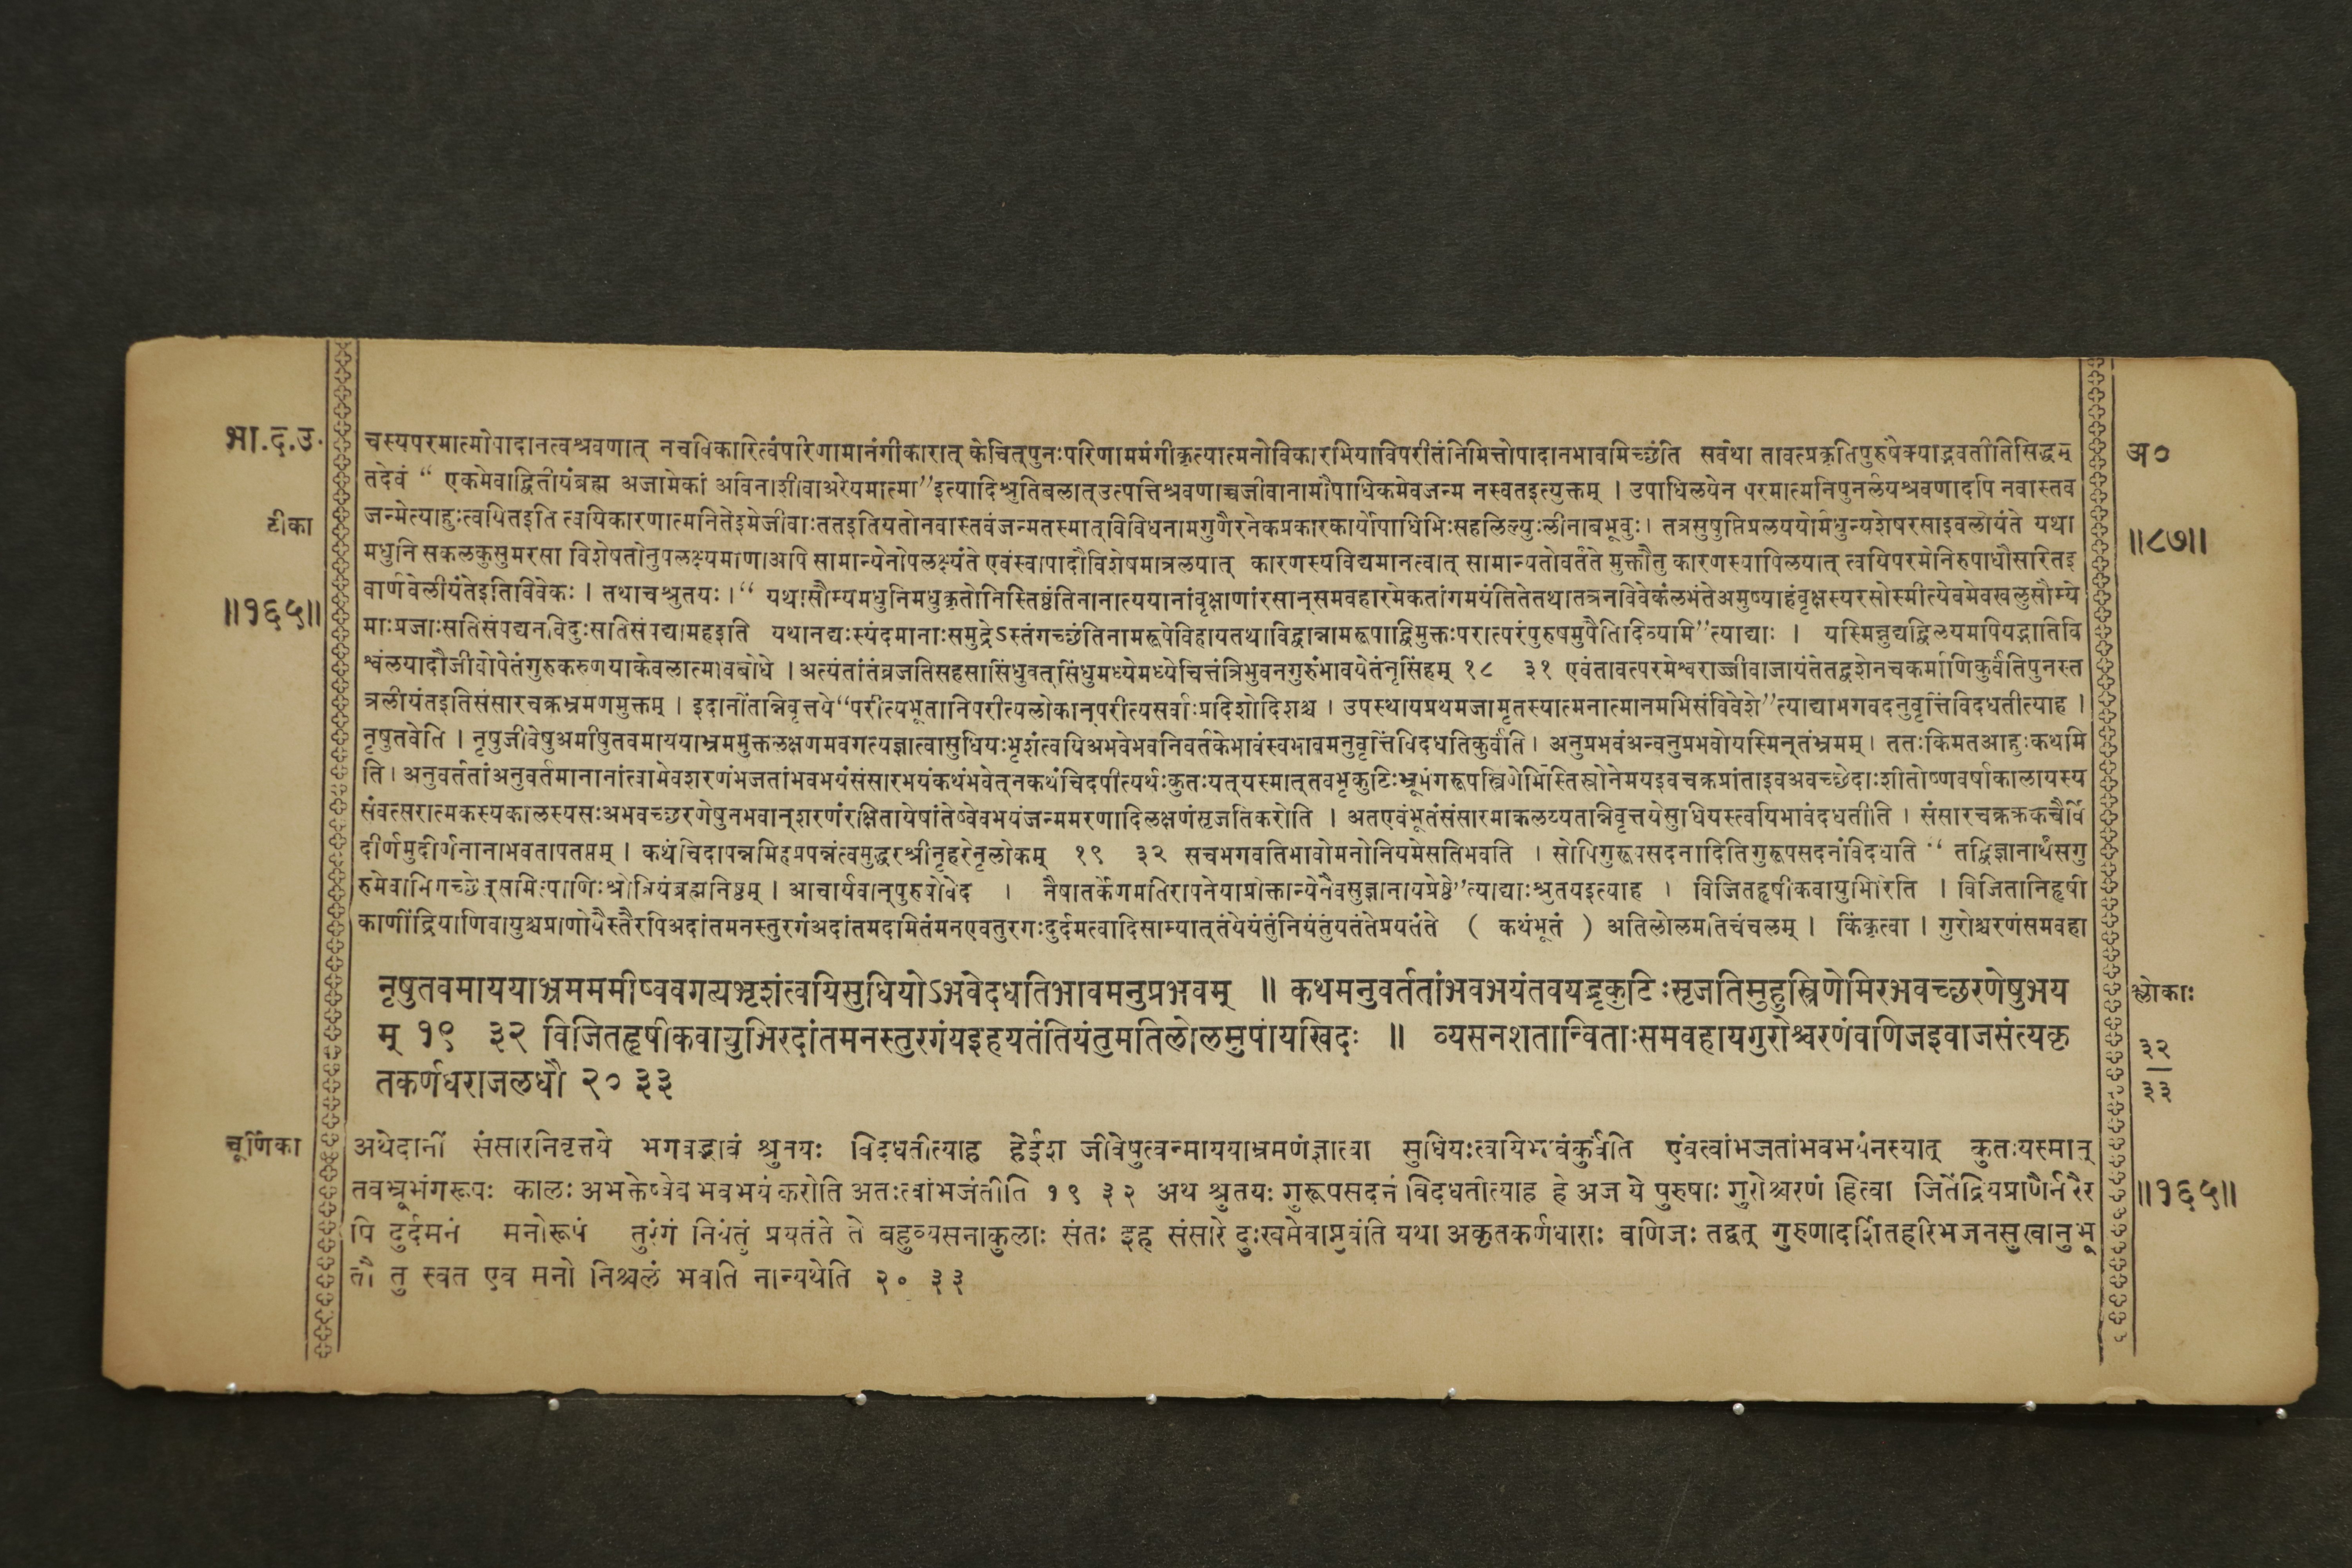 भा.द.उ.
टीका
॥१६५॥
चस्यपरमात्मोपादानत्वश्रवणात् नचविकारित्वंपरिणामानंगीकारात् केचित्पुनःपरिणाममंगीकृत्यात्मनोविकारभियाविपरीतंनिमित्तोपादानभावमिच्छंति सर्वथा तावत्प्रकृतिपुरुषैक्याद्भवतीतिसिद्धम्
तदेवं “ एकमेवाद्वितीयंब्रह्म अजामेकां अविनाशीवाअरेयमात्मा”इत्यादिश्रुतिबलात्उत्पत्तिश्रवणाच्चजीवानामौपाधिकमेवजन्म नस्वतइत्युक्तम् । उपाधिलयेन परमात्मनिपुनर्लयश्रवणादपि नवास्तव
जन्मेत्याहुःत्वयितइति त्वयिकारणात्मनितेइमेजीवाःततइतियतोनवास्तवंजन्मतस्मात्विविधनामगुणैरनेकप्रकारकार्योपाधिभिःसहलिल्युःलीनाबभूवुः। तत्रसुषुप्तिप्रलययोर्मधुन्यशेषरसाइवलीयंते यथा
मधुनि सकलकुसुमरसा विशेषतोनुपलक्ष्यमाणाअपि सामान्येनोपलक्ष्यंते एवंस्वापादौविशेषमात्रलयात् कारणस्यविद्यमानत्वात् सामान्यतोवर्तते मुक्तौतु कारणस्यापिलयात् त्वयिपरमेनिरुपाधौसरितइ
वार्णवेलीयंतेइतिविवेकः । तथाचश्रुतयः ।“ यथासौम्यमधुनिमधुकृतोनिस्तिष्ठंतिनानात्ययानांवृक्षाणांरसान्समवहारमेकतांगमयंतितेतथातत्रनविवेकंलभंतेअमुष्याहंवृक्षस्यरसोस्मीत्येवमेवखलुसौम्ये
माःप्रजाःसतिसंपद्यनविदुःसतिसंपद्यामहइति यथानद्यःस्यंदमानाःसमुद्रेऽस्तंगच्छंतिनामरूपेविहायतथाविद्वान्नामरूपाद्विमुक्तःपरात्परंपुरुषमुपैतिदिव्यामि”त्याद्याः । यस्मिन्नुद्यद्विलयमपियद्भातिवि
श्वंलयादौजीवोपेतंगुरुकरुणयाकेवलात्मावबोधे । अत्यंतांतंव्रजतिसहसासिंधुवत्सिंधुमध्येमध्येचित्तंत्रिभुवनगुरुंभावयेतंनृसिंहम् १८ ३१ एवंतावत्परमेश्वराज्जीवाजायंतेतद्वशेनचकर्माणिकुर्वंतिपुनस्त
त्रलीयंतइतिसंसारचक्रभ्रमणमुक्तम् । इदानींतन्निवृत्तये“परीत्यभूतानिपरीत्यलोकान्परीत्यसर्वाःप्रदिशोदिशश्च । उपस्थायप्रथमजामृतस्यात्मनात्मानमभिसंविवेशे”त्याद्याभगवदनुवृत्तिंविदधतीत्याह ।
नृषुतवेति । नृषुजीवेषुअमीषुतवमाययाभ्रममुक्तलक्षणमवगत्यज्ञात्वासुधियःभृशंत्वयिअभवेभवनिवर्तकेभावंस्वभावमनुवृत्तिंविदधतिकुर्वंति । अनुप्रभवंअन्वनुप्रभवोयस्मिन्तंभ्रमम् । ततःकिमतआहुःकथमि
ति । अनुवर्ततांअनुवर्तमानानांत्वामेवशरणंभजतांभवभयंसंसारभयंकथंभवेत्नकथंचिदपीत्यर्थःकुतःयत्यस्मात्तवभृकुटिःभ्रूभंगरूपस्त्रिणेमिस्तिस्रोनेमयइवचक्रप्रांताइवअवच्छेदाःशीतोष्णवर्षाकालायस्य
संवत्सरात्मकस्यकालस्यसःअभवच्छरणेषुनभवान्शरणंरक्षितायेषांतेष्वेवभयंजन्ममरणादिलक्षणंसृजतिकरोति । अतएवंभूतंसंसारमाकलय्यतन्निवृत्तयेसुधियस्त्वयिभावंदधतीति । संसारचक्रक्रकचैर्वि
दीर्णमुदीर्णनानाभवतापतप्तम् । कथंचिदापन्नमिहप्रपन्नंत्वमुद्धरश्रीनृहरेनृलोकम् १९ ३२ सचभगवतिभावोमनोनियमेसतिभवति । सोपिगुरूपसदनादितिगुरूपसदनंविदधाति “ तद्विज्ञानार्थंसगु
रुमेवाभिगच्छेत्समित्पाणिःश्रोत्रियंब्रह्मनिष्ठम् । आचार्यवान्पुरुषोवेद । नैषातर्केणमतिरापनेयाप्रोक्तान्येनैवसुज्ञानायप्रेष्ठे”त्याद्याःश्रुतयइत्याह । विजितहृषीकवायुभिरिति । विजितानिहृषी
काणींद्रियाणिवायुश्चप्राणोयैस्तैरपिअदांतमनस्तुरगंअदांतमदमितंमनएवतुरगःदुर्दमत्वादिसाम्यात्तंयेयंतुंनियंतुंयतंतेप्रयतंते ( कथंभूतं ) अतिलोलमतिचंचलम् । किंकृत्वा । गुरोश्चरणंसमवहा
नृषुतवमाययाभ्रमममीष्ववगत्यभृशंत्वयिसुधियोऽभवेदधतिभावमनुप्रभवम् ॥ कथमनुवर्ततांभवभयंतवयद्भृकुटिःसृजतिमुहुस्त्रिणेमिरभवच्छरणेषुभय
म् १९ ३२ विजितहृषीकवायुभिरदांतमनस्तुरगंयइहयतंतियंतुमतिलोलमुपायखिदः ॥ व्यसनशतान्विताःसमवहायगुरोश्चरणंवणिजइवाजसंत्यकृ
तकर्णधराजलधौ २० ३३
चूर्णिका
अथेदानीं संसारनिवृत्तये भगवद्भावं श्रुतयः विदधतीत्याह हेईश जीवेषुत्वन्माययाभ्रमणंज्ञात्वा सुधियःत्वयिभावंकुर्वंति एवंत्वांभजतांभवभयंनस्यात् कुतःयस्मात्
तवभ्रूभंगरूपः कालः अभक्तेष्वेव भवभयं करोति अतःत्वांभजंतीति १९ ३२ अथ श्रुतयः गुरूपसदनं विदधतीत्याह हे अज ये पुरुषाः गुरोश्चरणं हित्वा जितेंद्रियप्राणैर्नरैर
पि दुर्दमनं मनोरूपं तुरंगं नियंतुं प्रयतंते ते बहुव्यसनाकुलाः संतः इह संसारे दुःखमेवाप्नुवंति यथा अकृतकर्णधाराः वणिजः तद्वत् गुरुणादर्शितहरिभजनसुखानुभू
तौ तु स्वत एव मनो निश्चलं भवति नान्यथेति २० ३३
अ०
॥८७॥
श्लोकाः
३२
३३
॥१६५॥